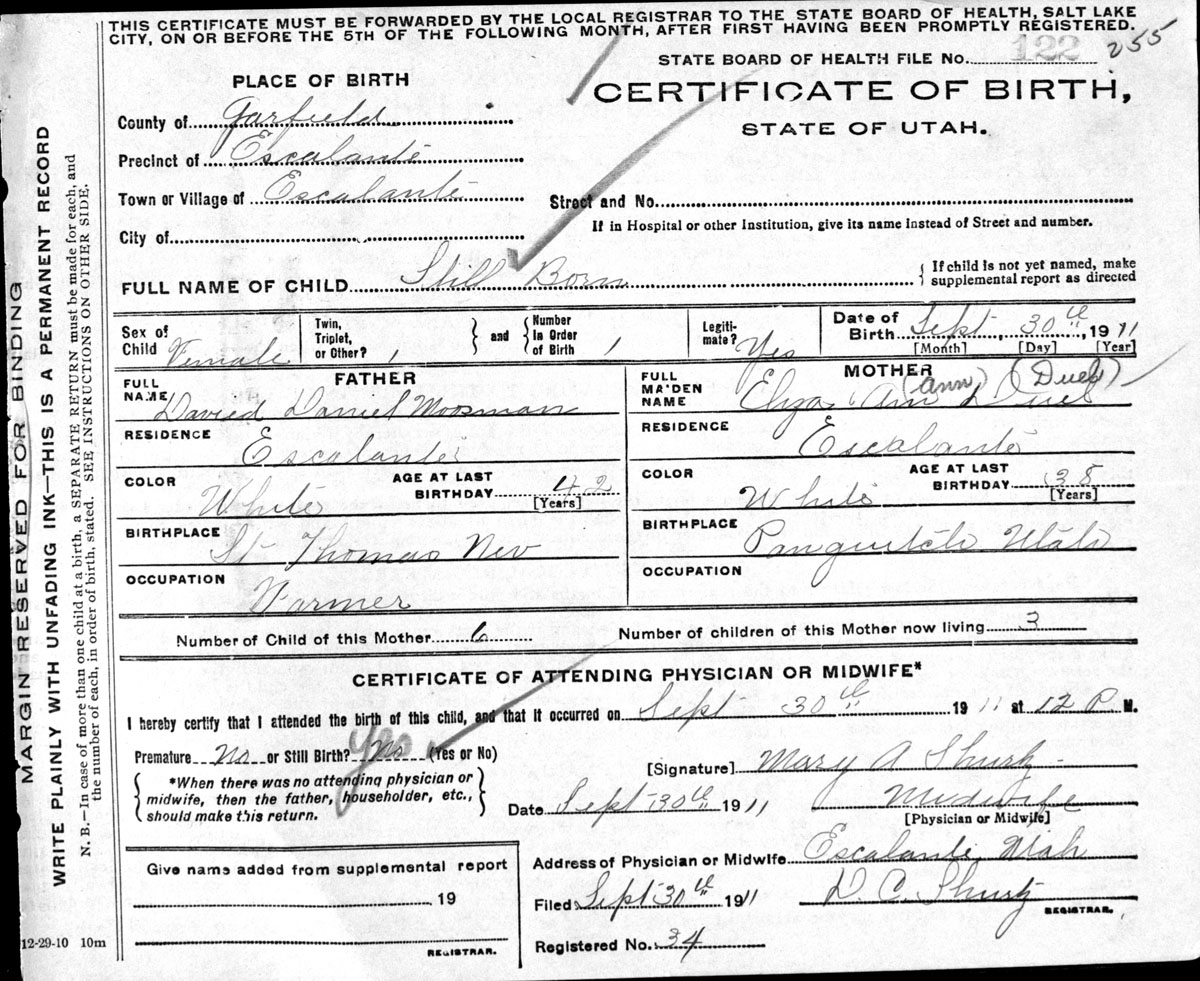 THIS CERTIFICATE MUST BE FORWARDED BY THE LOCAL REGISTRAR TO THE STATE BOARD OF HEALTH, SALT LAKE
CITY, ON OR BEFORE THE 5TH OF THE FOLLOWING MONTH, AFTER FIRST HAVING BEEN PROMPTLY REGISTERED.
STATE BOARD OF HEALTH FILE No. 122 255
PLACE OF BIRTH
CERTIFICATE OF BIRTH,
STATE OF UTAH.
County of Garfield
Precinct of Escalante
Town or Village of Escalante
Street and No.
If in Hospital or other Institution, give its name instead of Street and number.
City of
FULL NAME OF CHILD Still Born
If child is not yet named, make
supplemental report as directed
Sex of Child Female
Twin, Triplet, or Other? 1
and
Number in Order of Birth 1
Legiti-mate? Yes
Date of Birth Sept 30th 1911
[Month] [Day] [Year]
FATHER
FULL NAME David Daniel Moosman
RESIDENCE Escalante
COLOR White
AGE AT LAST BIRTHDAY 42
[Years]
BIRTHPLACE St Thomas Nev
OCCUPATION Farmer
MOTHER
FULL MAIDEN NAME Eliza Ann (Ann) (Duel)
RESIDENCE Escalante
COLOR White
AGE AT LAST BIRTHDAY 38
[Years]
BIRTHPLACE Panguitch Utah
OCCUPATION
Number of Child of this Mother 6
Number of children of this Mother now living 3
CERTIFICATE OF ATTENDING PHYSICIAN OR MIDWIFE*
I hereby certify that I attended the birth of this child, and that it occurred on Sept 30th 1911 at 12 P M.
Premature No or Still Birth? No Yes (Yes or No)
*When there was no attending physician or
midwife, then the father, householder, etc.,
should make this return.
[Signature] Mary A Shurtz
Date Sept 30th 1911
Midwife
[Physician or Midwife]
Give name added from supplemental report
19
REGISTRAR.
Address of Physician or Midwife Escalante Utah
Filed Sept 30th 1911
D. C. Shurtz
REGISTRAR.
Registered No. 34
12-29-10 10m
MARGIN RESERVED FOR BINDING
WRITE PLAINLY WITH UNFADING INK—THIS IS A PERMANENT RECORD
N. B.—In case of more than one child at a birth, a SEPARATE RETURN must be made for each, and
the number of each, in order of birth, stated. SEE INSTRUCTIONS ON OTHER SIDE.